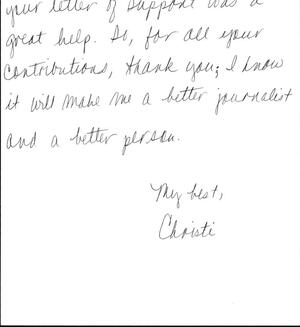 your letter of support was a
great help. So, for all your
contributions, thank you; I know
it will make me a better journalist
and a better person.
My best,
Christi